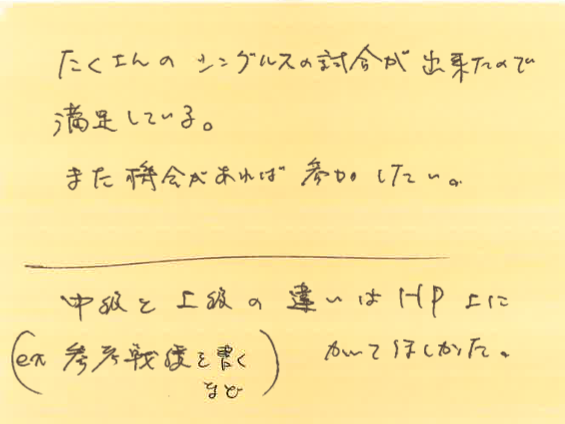 たくさんのシングルスの試合が出来たので
満足している。
また機会があれば参加したい。
中級と上級の違いはHP上に
(ex 参考戦績を書く
など)
かいてほしかった。